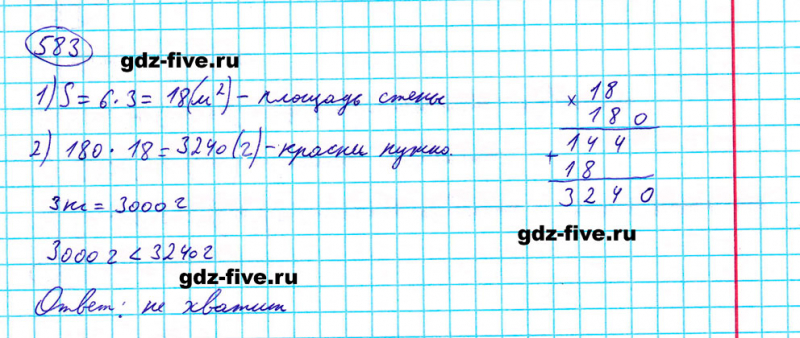 583
gdz-five.ru
1) S = 6 · 3 = 18 (м²) – площадь стены
2) 180 · 18 = 3240 (г) – краски нужно.
3 кг = 3000 г
3000 г < 3240 г
gdz-five.ru
Ответ: не хватит
× 18
180
144
+ 18
3240
gdz-five.ru